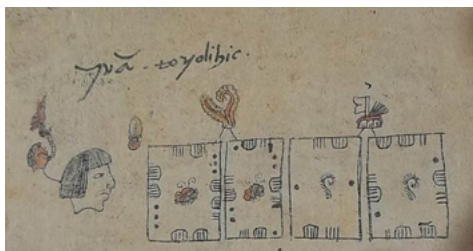 juā. toyolihic.